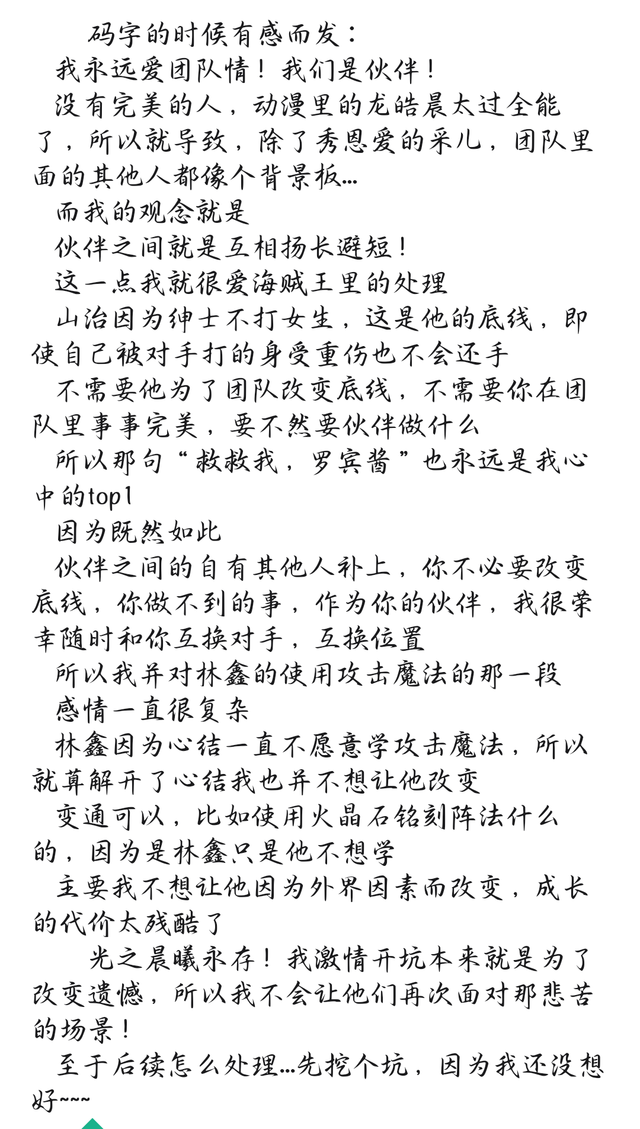 码字的时候有感而发：
我永远爱团队情！我们是伙伴！
没有完美的人，动漫里的龙皓晨太过全能
了，所以就导致，除了秀恩爱的采儿，团队里
面的其他人都像个背景板...
而我的观念就是
伙伴之间就是互相扬长避短！
这一点我就很爱海贼王里的处理
山治因为绅士不打女生，这是他的底线，即
使自己被对手打的身受重伤也不会还手
不需要他为了团队改变底线，不需要你在团
队里事事完美，要不然要伙伴做什么
所以那句“救救我，罗宾酱”也永远是我心
中的top1
因为既然如此
伙伴之间的自有其他人补上，你不必要改变
底线，你做不到的事，作为你的伙伴，我很荣
幸随时和你互换对手，互换位置
所以我并对林鑫的使用攻击魔法的那一段
感情一直很复杂
林鑫因为心结一直不愿意学攻击魔法，所以
就算解开了心结我也并不想让他改变
变通可以，比如使用火晶石铭刻阵法什么
的，因为是林鑫只是他不想学
主要我不想让他因为外界因素而改变，成长
的代价太残酷了
光之晨曦永存！我激情开坑本来就是为了
改变遗憾，所以我不会让他们再次面对那悲苦
的场景！
至于后续怎么处理...先挖个坑，因为我还没想
好~~~